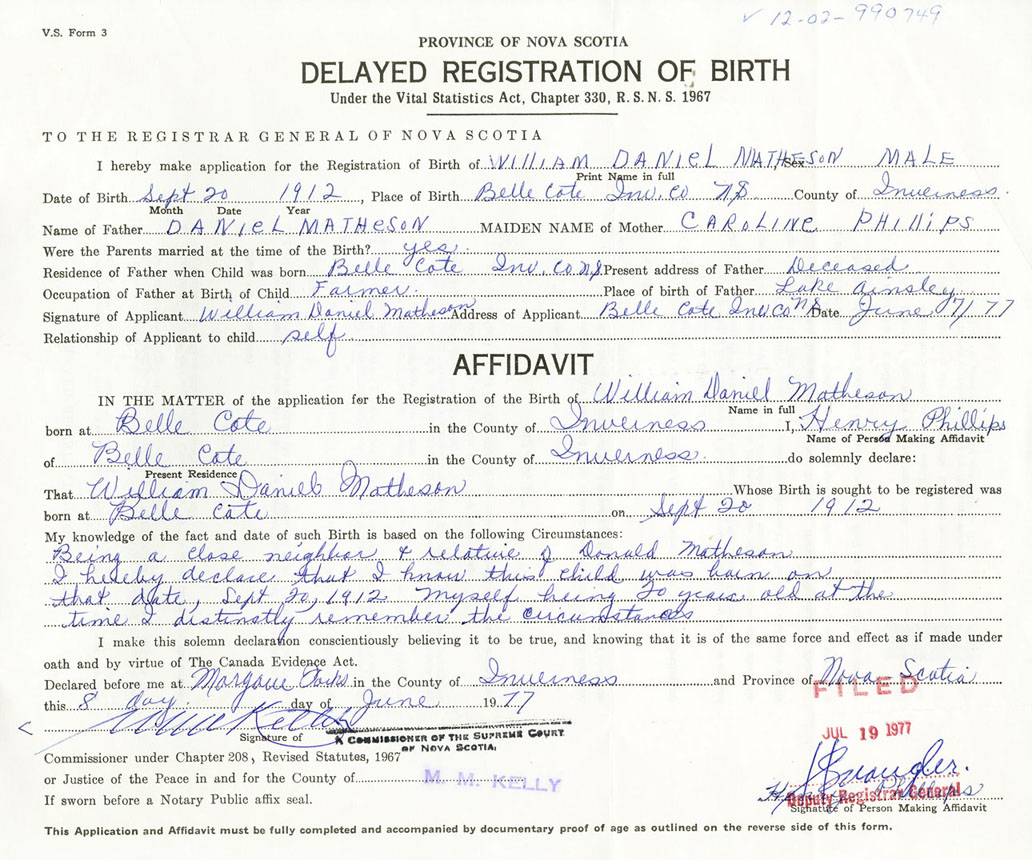 ✓ 12-02-990749
V.S. Form 3
PROVINCE OF NOVA SCOTIA
DELAYED REGISTRATION OF BIRTH
Under the Vital Statistics Act, Chapter 330, R.S.N.S. 1967
TO THE REGISTRAR GENERAL OF NOVA SCOTIA
I hereby make application for the Registration of Birth of WILLIAM DANIEL MATHESON Sex MALE
Print Name in full
Date of Birth Sept 20 1912, Place of Birth Belle Cote Inv. Co NS County of Inverness
Month Date Year
Name of Father DANIEL MATHESON MAIDEN NAME of Mother CAROLINE PHILLIPS
Were the Parents married at the time of the Birth? yes
Residence of Father when Child was born Belle Cote Inv. Co NS Present address of Father Deceased
Occupation of Father at Birth of Child Farmer. Place of birth of Father Lake Ainsley
Signature of Applicant William Daniel Matheson Address of Applicant Belle Cote Inv Co NS Date June 7/77
Relationship of Applicant to child self
AFFIDAVIT
IN THE MATTER of the application for the Registration of the Birth of William Daniel Matheson
Name in full
born at Belle Cote in the County of Inverness I, Henry Phillips
Name of Person Making Affidavit
of Belle Cote in the County of Inverness do solemnly declare:
Present Residence
That William Daniel Matheson Whose Birth is sought to be registered was
born at Belle Cote on Sept 20 1912
My knowledge of the fact and date of such Birth is based on the following Circumstances:
Being a close neighbor & relative of Donald Matheson
I hereby declare that I know this child was born on
that date, Sept 20, 1912 Myself being 20 years old at the
time I distinstly remember the circumstances
I make this solemn declaration conscientiously believing it to be true, and knowing that it is of the same force and effect as if made under
oath and by virtue of The Canada Evidence Act.
Declared before me at Margaree in the County of Inverness and Province of Nova Scotia
FILED
this 8 day day of June 1977
JUL 19 1977
Signature of
A COMMISSIONER OF THE SUPREME COURT
OF NOVA SCOTIA.
Commissioner under Chapter 208, Revised Statutes, 1967
or Justice of the Peace in and for the County of
M. M. KELLY
Henry Phillips
Deputy Registrar General
Signature of Person Making Affidavit
If sworn before a Notary Public affix seal.
This Application and Affidavit must be fully completed and accompanied by documentary proof of age as outlined on the reverse side of this form.